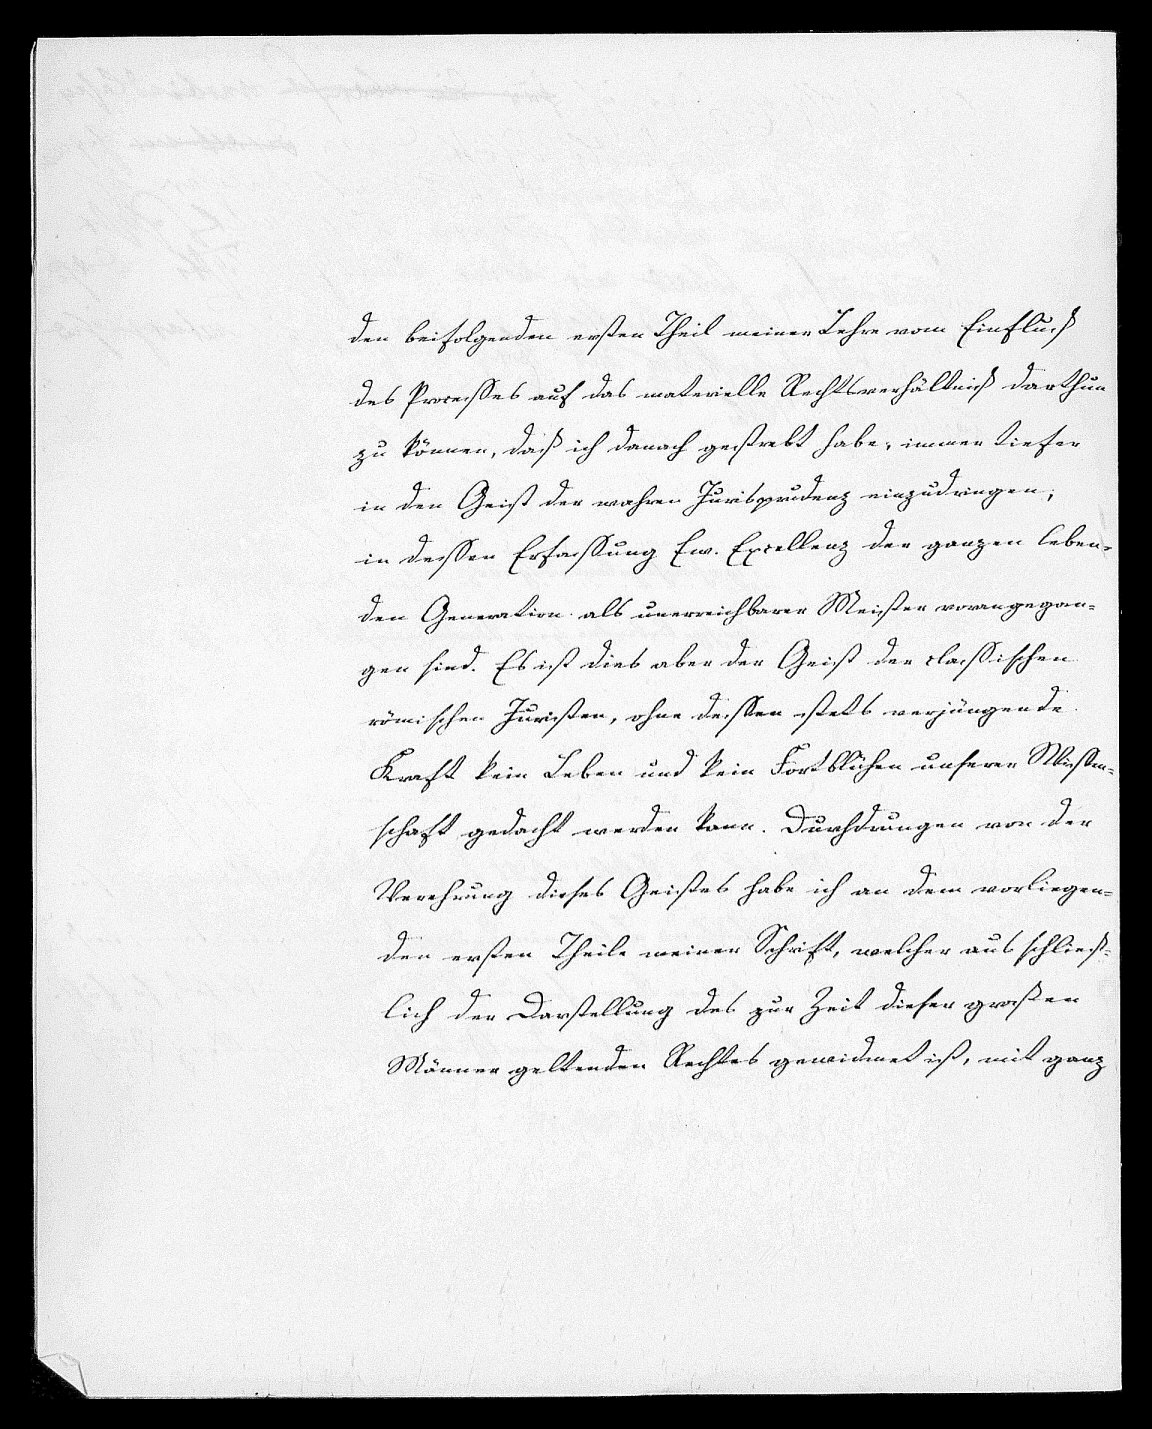 den beifolgenden ersten Theil meiner Lehre vom Einfluß
des Processes auf das materielle Rechtsverhältniß darthun
zu können, daß ich danach gestrebt habe, immer tiefer
in den Geist der wahren Jurisprudenz einzudringen,
in dessen Erfassung Ew. Excellenz der ganzen leben-
den Generation als unerreichbarer Meister vorangegan-
gen sind. Es ist dies aber der Geist der classischen
römischen Juristen, ohne dessen stets verjüngende
Kraft kein Leben und kein Fortblühen unserer Wissen-
schaft gedacht werden kann. Durchdrungen von der
Verehrung dieses Geistes habe ich an dem vorliegen-
den ersten Theile meiner Schrift, welcher ausschließ-
lich der Darstellung des zur Zeit dieser großen
Männer geltenden Rechtes gewidmet ist, mit ganz